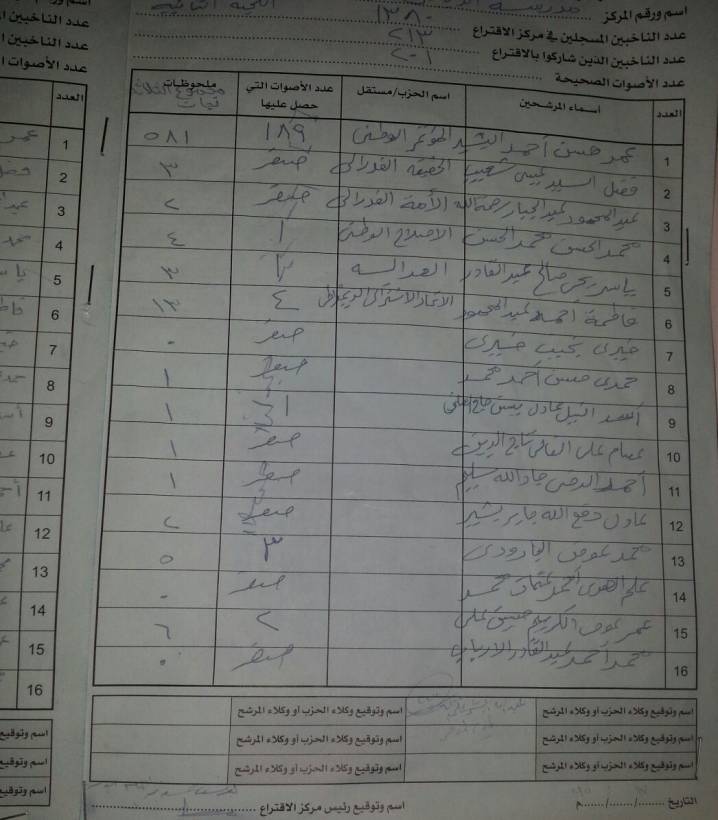 اسم ورقم المركز
عدد الناخبين المسجلين في مركز الاقتراع ١٣٨٠
عدد الناخبين الذين شاركوا بالاقتراع ٢١٣
عدد الأصوات الصحيحة ٢٠١
العدد اسماء المرشحين اسم الحزب/مستقل عدد الأصوات التي حصل عليها ملحوظات
1 عمر حسن أحمد البشير المؤتمر الوطني ١٨٩ ٥٨١
2 فضل السيد عيسى شعيب الحقيقة الفدرالي صفر ٣
3 عبد المحمود عبد الجبار رحمة الله الأمة الفدرالي صفر ٢
4 محمد الحسن محمد الحسن الاصلاح الوطني ١ ٤
5 ياسر يحي صالح عبد القادر العدالة ٣
6 فاطمة أحمد عبد المحمود الاتحاد الاشتراكي الديمقراطي ٤ ١٣
7 خيري بخيت خيري صفر ٠
8 حمدي حسن أحمد محمد صفر ١
9 أسعد النيل عادل يسن ١ ١
10 عصام علي الغالي تاج الدين صفر ١
11 أحمد الرضي جاد الله سليم صفر ١
12 عادل دفع الله جابر بشير صفر ٢
13 محمد عوض البارودي ٣ ٥
14 علم الهدى أحمد عثمان محمد صفر ٠
15 عمر عوض الكريم حسين علي ٢ ٦
16 محمد أحمد عبد القادر الارباب صفر ٠
اسم وتوقيع وكلاء الحزب أو وكلاء المرشح اسم وتوقيع وكلاء الحزب أو وكلاء المرشح
اسم وتوقيع وكلاء الحزب أو وكلاء المرشح اسم وتوقيع وكلاء الحزب أو وكلاء المرشح
اسم وتوقيع وكلاء الحزب أو وكلاء المرشح اسم وتوقيع وكلاء الحزب أو وكلاء المرشح
التاريخ ....../....../...... م اسم وتوقيع رئيس مركز الاقتراع
عدد الناخبين
عدد الناخبين
عدد الأصوات
العدد
1
2
3
4
5
6
7
8
9
10
11
12
13
14
15
16
اسم وتوقيع
اسم وتوقيع
اسم وتوقيع